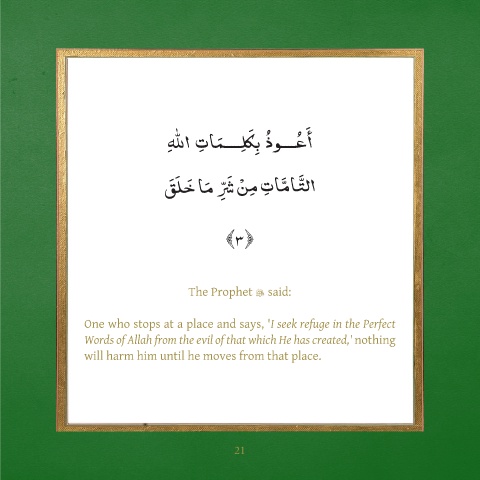 أَعُـــوذُ بِكَلِـــمَاتِ اللهِ
التَّامَّاتِ مِنْ شَرِّ مَا خَلَقَ
﴿٣﴾
The Prophet ﷺ said:
One who stops at a place and says, 'I seek refuge in the Perfect
Words of Allah from the evil of that which He has created,' nothing
will harm him until he moves from that place.
21